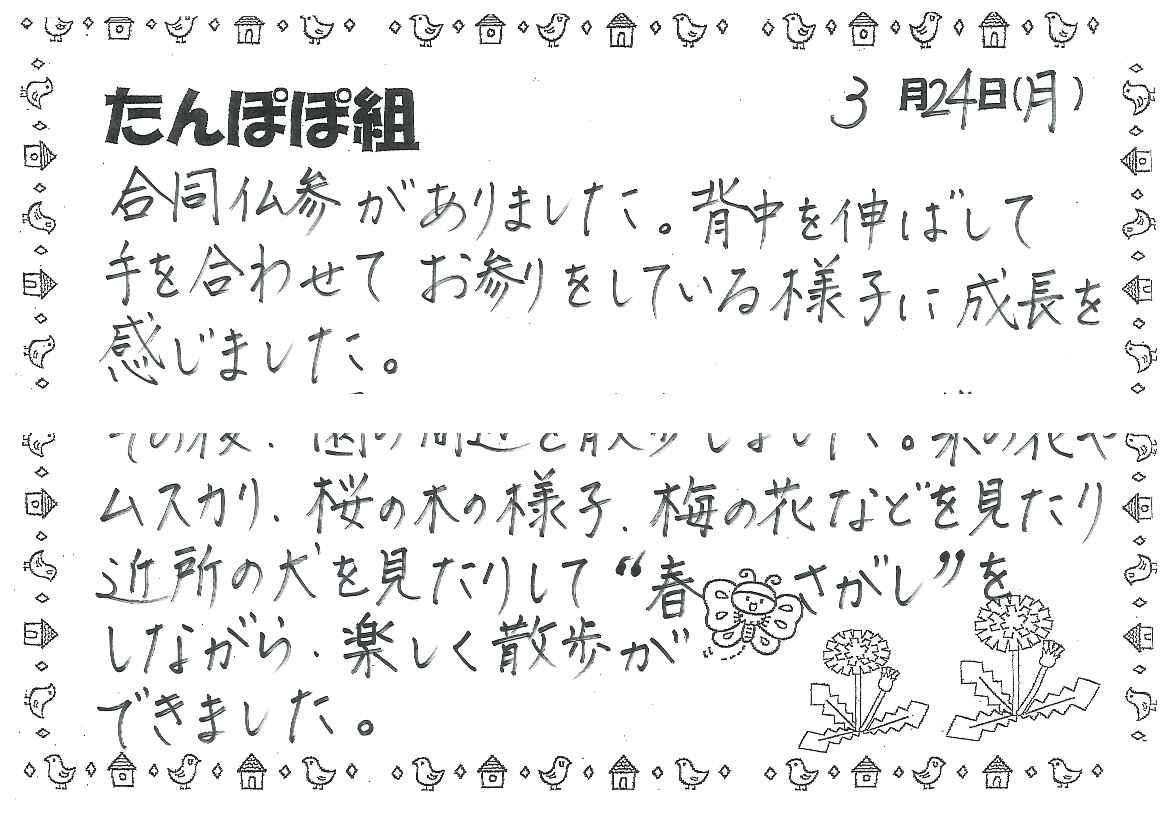 3月24日(月)
たんぽぽ組
合同仏参がありました。背中を伸ばして
手を合わせてお参りをしている様子に成長を
感じました。
その後、園の周辺を散歩しました。菜の花や
ムスカリ、桜の木の様子、梅の花などを見たり
近所の犬を見たりして“春さがし”を
しながら、楽しく散歩が
できました。